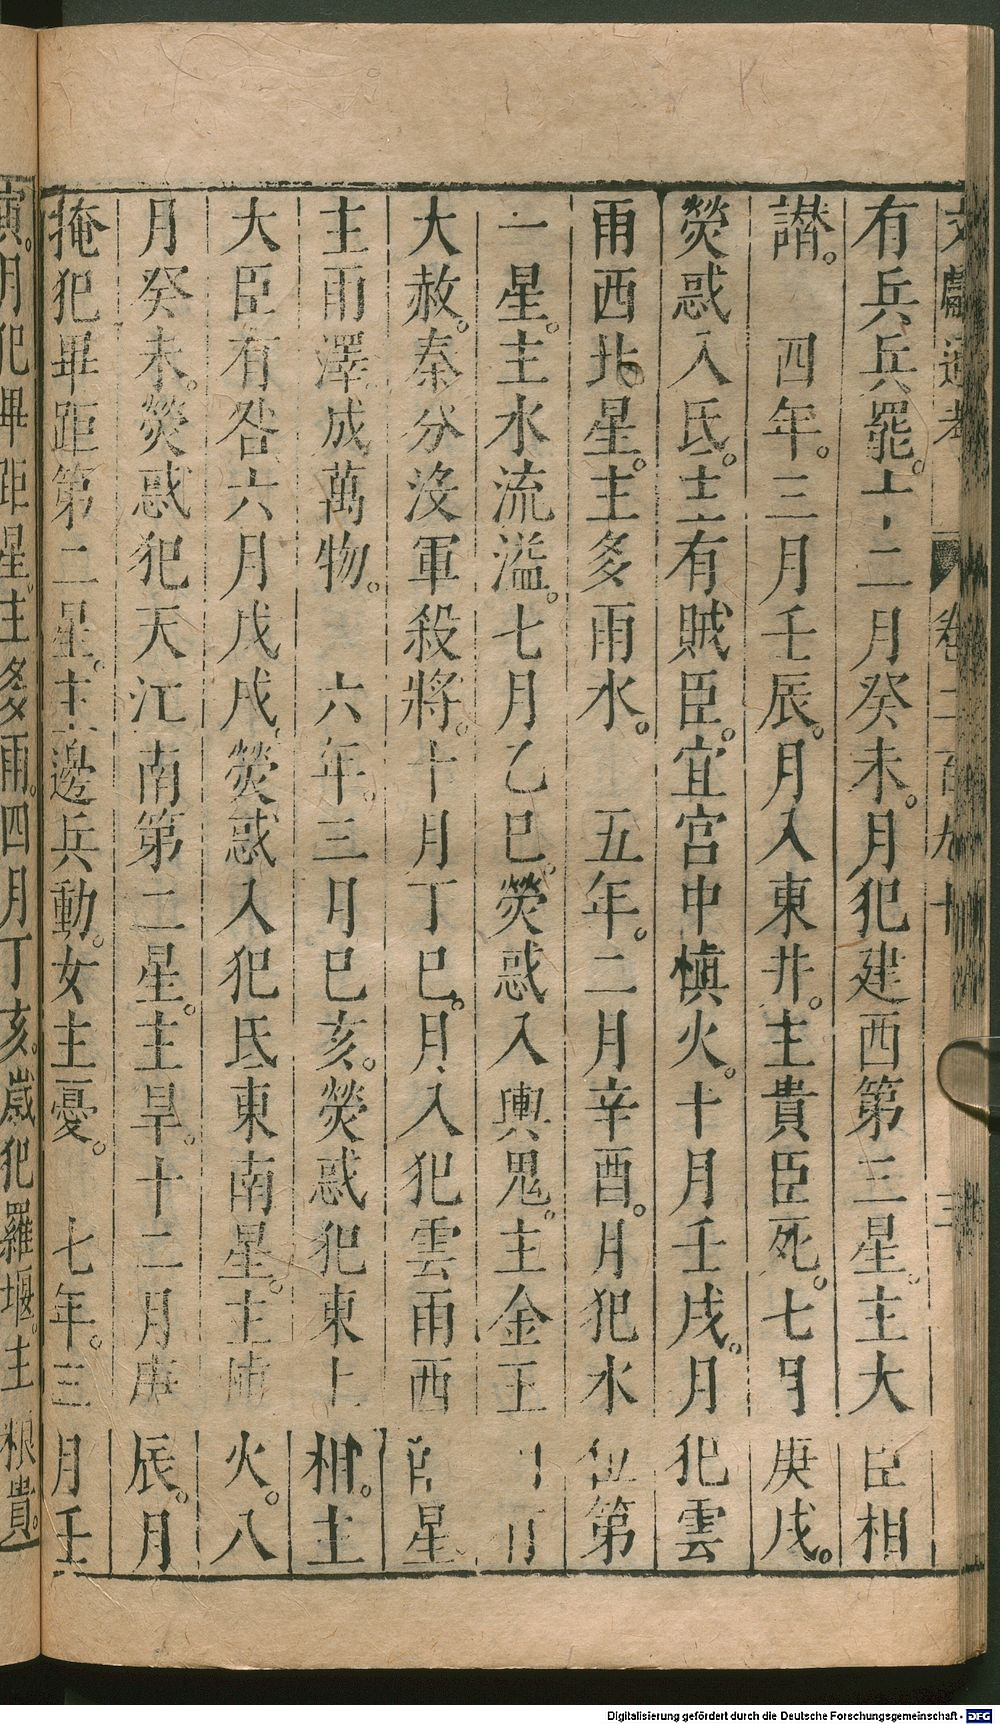 文獻通考 卷二百九十 三
有兵兵罷。十二月癸未。月犯建西第三星。主大臣相
譛。 四年。三月壬辰。月入東井。主貴臣死。七月庚戌。
熒惑入氐。主有賊臣。宜宮中慎火。十月壬戌。月犯雲
雨西北星。主多雨水。 五年。二月辛酉。月犯水位第
一星。主水流溢。七月乙巳。熒惑入輿鬼。主金玉
大赦。秦分沒軍殺將。十月丁巳。月入犯雲雨西南星
主雨澤成萬物。 六年。三月巳亥。熒惑犯東上相。主
大臣有咎六月戊戌。熒惑入犯氐東南星。主 火。八
月癸未。熒惑犯天江南第二星。主旱。十二月庚辰。月
掩犯畢距第二星。主邊兵動。女主憂。 七年。三月壬
寅。月犯畢距星。主多雨。四月丁亥。歲犯羅堰。主 貴。
Digitalisierung gefördert durch die Deutsche Forschungsgemeinschaft - DFG